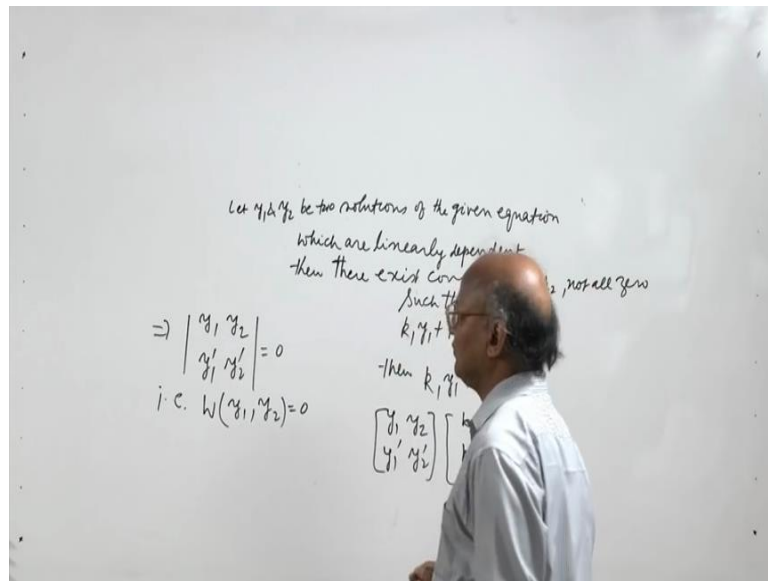 Let y₁ & y₂ be two solutions of the given equation
which are linearly dependent
then there exist , not all zero
Such
k₁y₁ +
then k₁y₁
[y₁ y₂
y₁′ y₂′] [
⇒ | y₁ y₂
y₁′ y₂′ | = 0
i.e. W(y₁, y₂) = 0